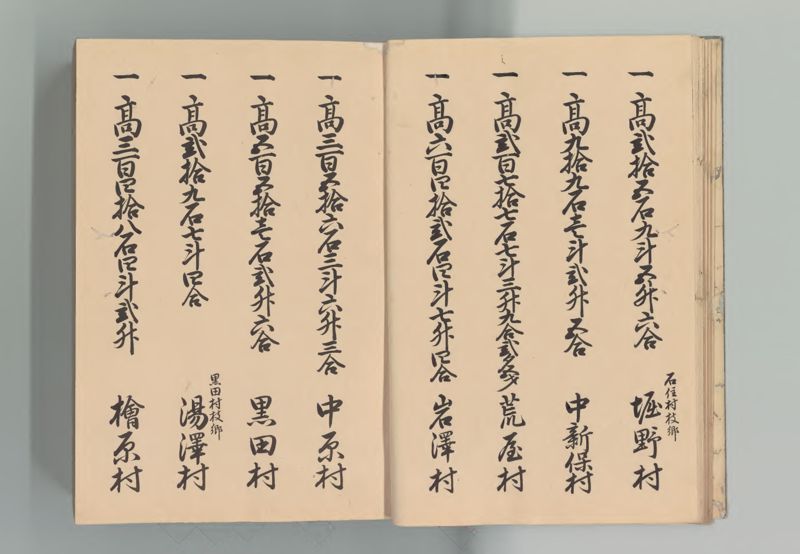 一 高弐拾五石九斗五升六合 石住村枝郷 堀野村
一 高九拾九石壱斗弐升五合 中新保村
一 高弐百七拾七石七斗三升九合弐勺 荒屋村
一 高六百四拾弐石四斗七升四合 岩澤村
一 高三百五拾六石三斗六升三合 中原村
一 高五百五拾壱石弐升六合 黒田村
一 高弐拾九石七斗四合 黒田村枝郷 湯澤村
一 高三百四拾八石四斗弐升 檜原村